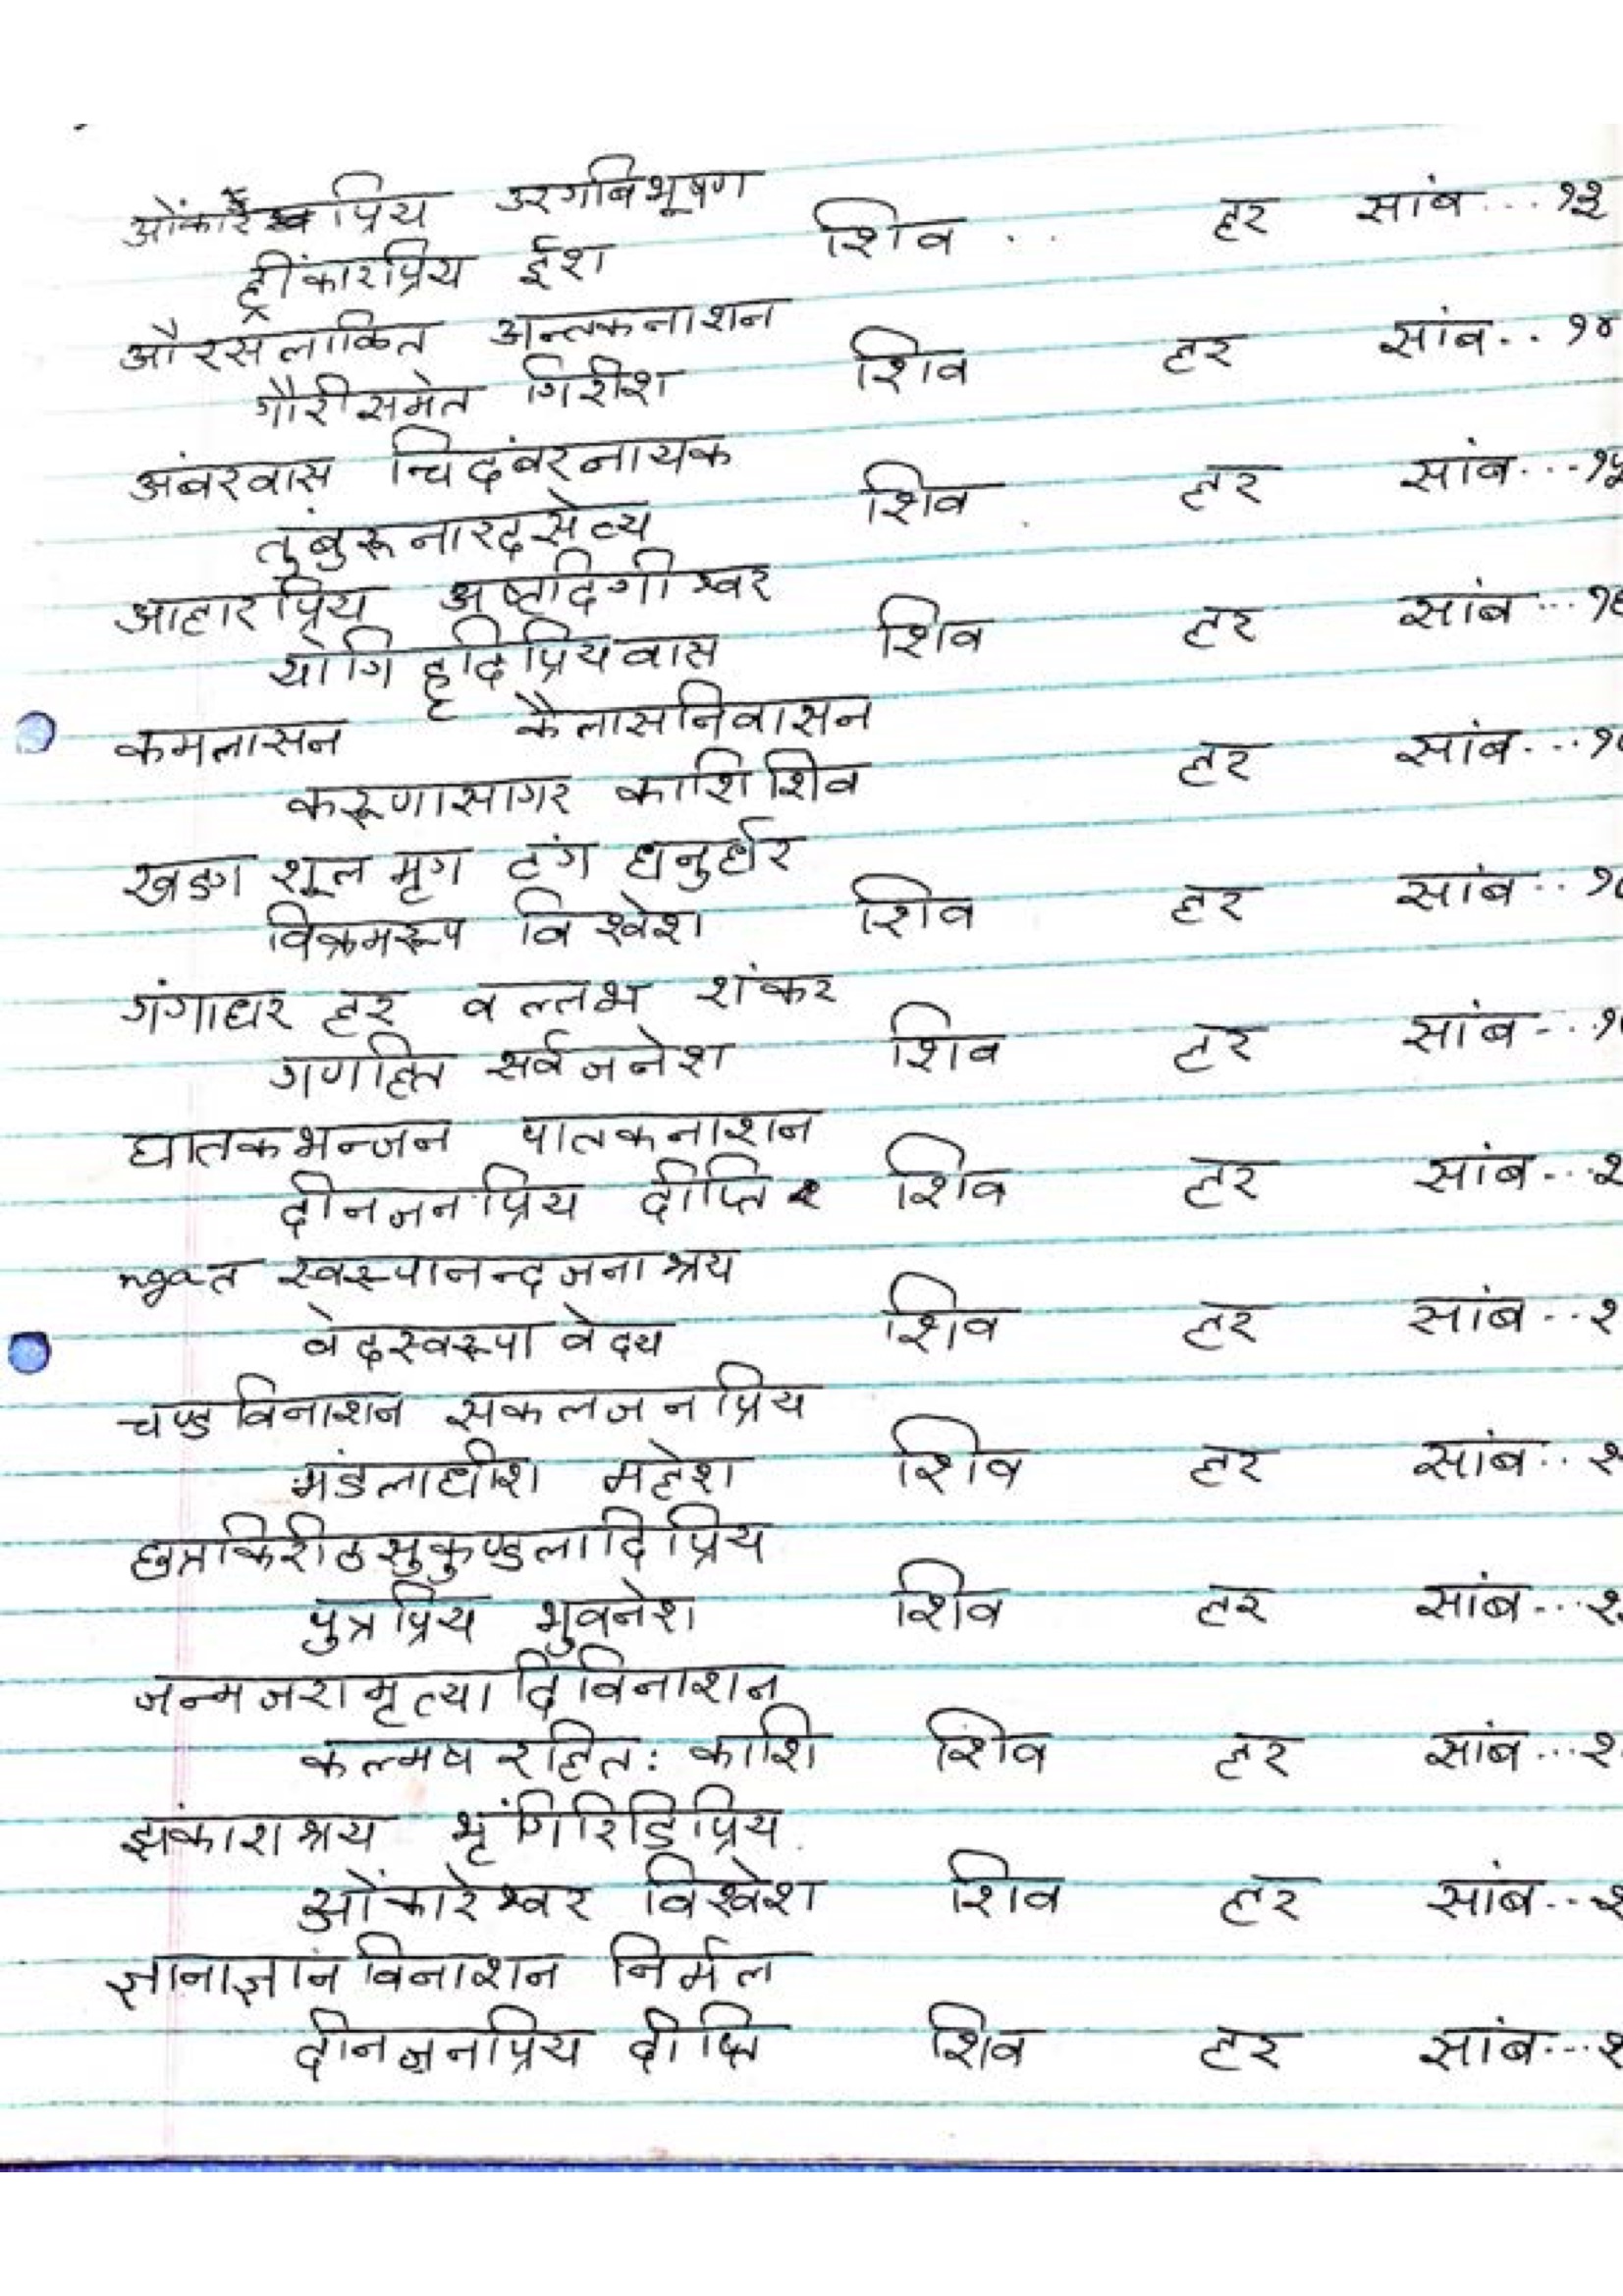 ओंकारप्रिय उरगविभूषण
ह्रींकारप्रिय ईश शिव .. हर सांब... १३
औरसलाळित अन्तकनाशन
गौरीसमेत गिरीश शिव हर सांब.. १४
अंबरवास चिदंबरनायक
तुंबुरूनारदसेव्य शिव हर सांब... १५
आहारप्रिय अष्टदिगीश्वर
योगि हृदिप्रियवास शिव हर सांब ... १६
कमलासन कैलासनिवासन
करूणासागर काशि शिव हर सांब... १
खड्ग शूल मृग टंग धनुर्धर
विक्रमरूप विश्वेश शिव हर सांब .. १
गंगाधर हर वल्लभ शंकर
गणहित सर्वजनेश शिव हर सांब ... १
घातकभन्जन पातकनाशन
दीनजनप्रिय दीप्ति शिव हर सांब... २
ngaत स्वरूपानन्दजनाश्रय
वेदस्वरूपा वेद्य शिव हर सांब... २
चण्डविनाशन सकलजनप्रिय
मंडलाधीश महेश शिव हर सांब.. २
छत्रकिरीठसुकुण्डलादिप्रिय
पुत्रप्रिय भुवनेश शिव हर सांब... २
जन्मजरामृत्यादिविनाशन
कल्मषरहित: काशि शिव हर सांब... २
झंकाराश्रय भृंगिरिडिप्रिय
ओंकारेश्वर विश्वेश शिव हर सांब... २
ज्ञानाज्ञानविनाशन निर्मल
दीनजनप्रिय दीप्ति शिव हर सांब... २